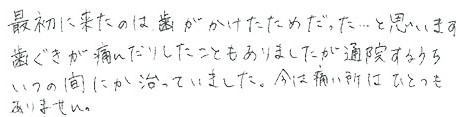 最初に来たのは歯がかけたためだった…と思います
歯ぐきが痛んだりしたこともありましたが通院するうち
いつの間にか治っていました。今は痛い所はひとつも
ありません。